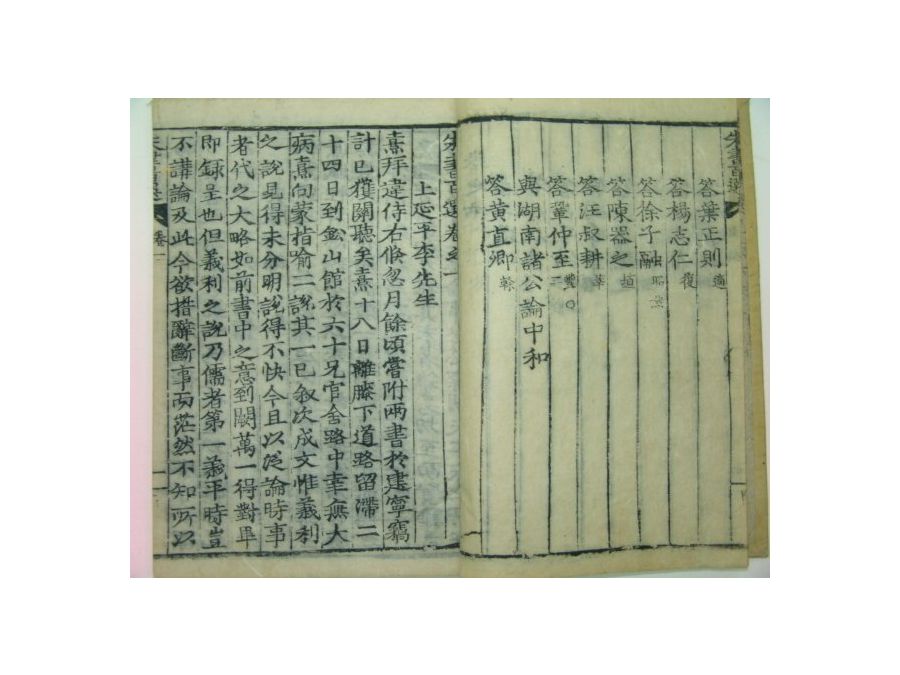 朱書百選
答葉正則 適
答楊志仁 復
答徐子融 昭然
答陳器之 埴
答汪叔耕 莘
答鞏仲至 豐〇二
與湖南諸公論中和
答黃直卿 榦
朱書百選卷之一
上延平李先生
熹拜違侍右倏忽月餘頃嘗附兩書於建寧竊
計已獲關聽矣熹十八日離膝下道路留滯二
十四日到鉛山館於六十兄官舍路中幸無大
病熹向蒙指喻二說其一已叙次成文惟義利
之說見得未分明說得不快今且以泛論時事
者代之大略如前書中之意到闕萬一得對畢
即錄呈也但義利之說乃儒者第一義平時豈
不講論及此今欲措辭斷事而茫然不知所以
朱書百選 卷一